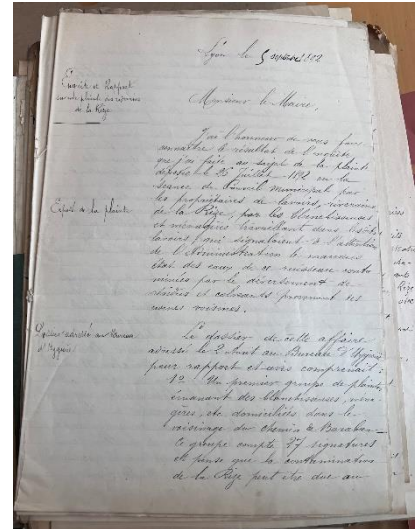 Lyon le 5 septembre 1892
Enquête et Rapport
sur la plainte des riverains
de la Rize
Monsieur le Maire,
J'ai l'honneur de vous faire
connaître le résultat de l'enquête
que j'ai faite au sujet de la plainte
déposée le 26 Juillet 1892 en la
séance du Conseil municipal par
les propriétaires de lavoirs, riverains
Exposé de la plainte
de la Rize, par les blanchisseuses
et ménagères travaillant dans
lavoirs, qui signalaient à l'attention
de l'Administration le mauvais
état des eaux de ce ruisseau conta
minées par le déversement de
résidus et colorants provenant des
usines voisines.
Dossier adressé au Bureau
d'Hygiène
Le dossier de cette affaire
adressé le 2 Août au Bureau d'Hygiène
pour rapport et avis comprenait :
1° Un premier groupe de plaintes
émanant des blanchisseuses, ména
gères, etc domiciliées dans le
voisinage du chemin de Baraban
Ce groupe compte 27 signatures
et pense que la contamination
de la Rize peut être due au